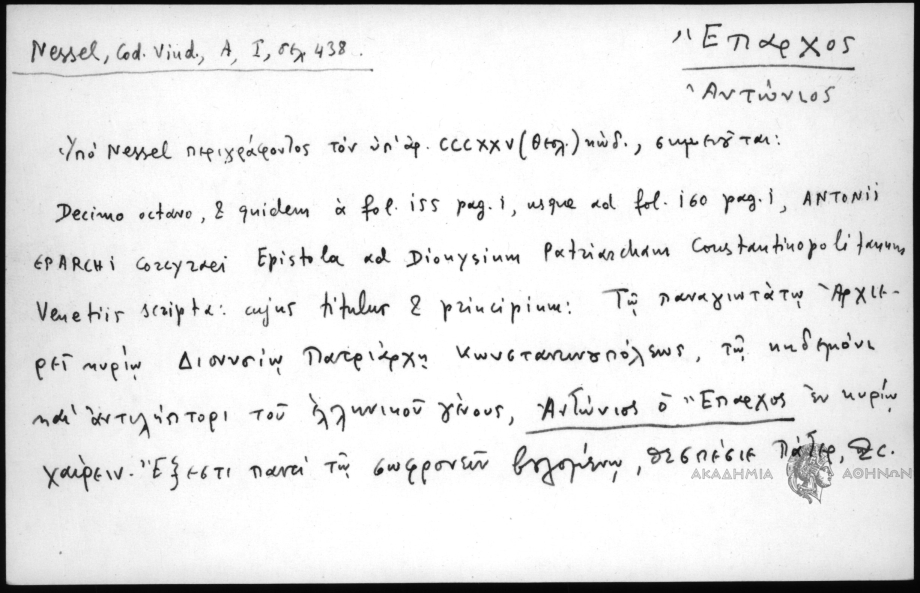 Nessel, Cod. Vind., A, I, σελ 438.
Ἔπαρχος
Ἀντώνιος
Ὑπό Nessel περιγράφοντος τόν ὑπ' ἀρ. CCCXXV (θεολ.) κώδ., σημειοῦται:
Decimo octavo, & quidem à fol. 155 pag. 1, usque ad fol. 160 pag. 1, ANTONii
EPARCHi Corcyraei Epistola ad Dionysium Patriarcham Constantinopolitanum
Venetiis scripta: cujus titulus & principium: Τῷ παναγιωτάτῳ Ἀρχιε-
ρεῖ κυρίῳ Διονυσίῳ Πατριάρχῃ Κωνσταντινουπόλεως, τῷ κηδεμόνι
καί ἀντιλήπτορι τοῦ ἑλληνικοῦ γένους, Ἀντώνιος ὁ Ἔπαρχος ἐν κυρίῳ
χαίρειν. Ἔξεστι παντί τῷ σωφρονεῖν βουλομένῳ, θεσπέσιε Πάτερ, &c.
ΑΚΑΔΗΜΙΑ ΑΘΗΝΩΝ